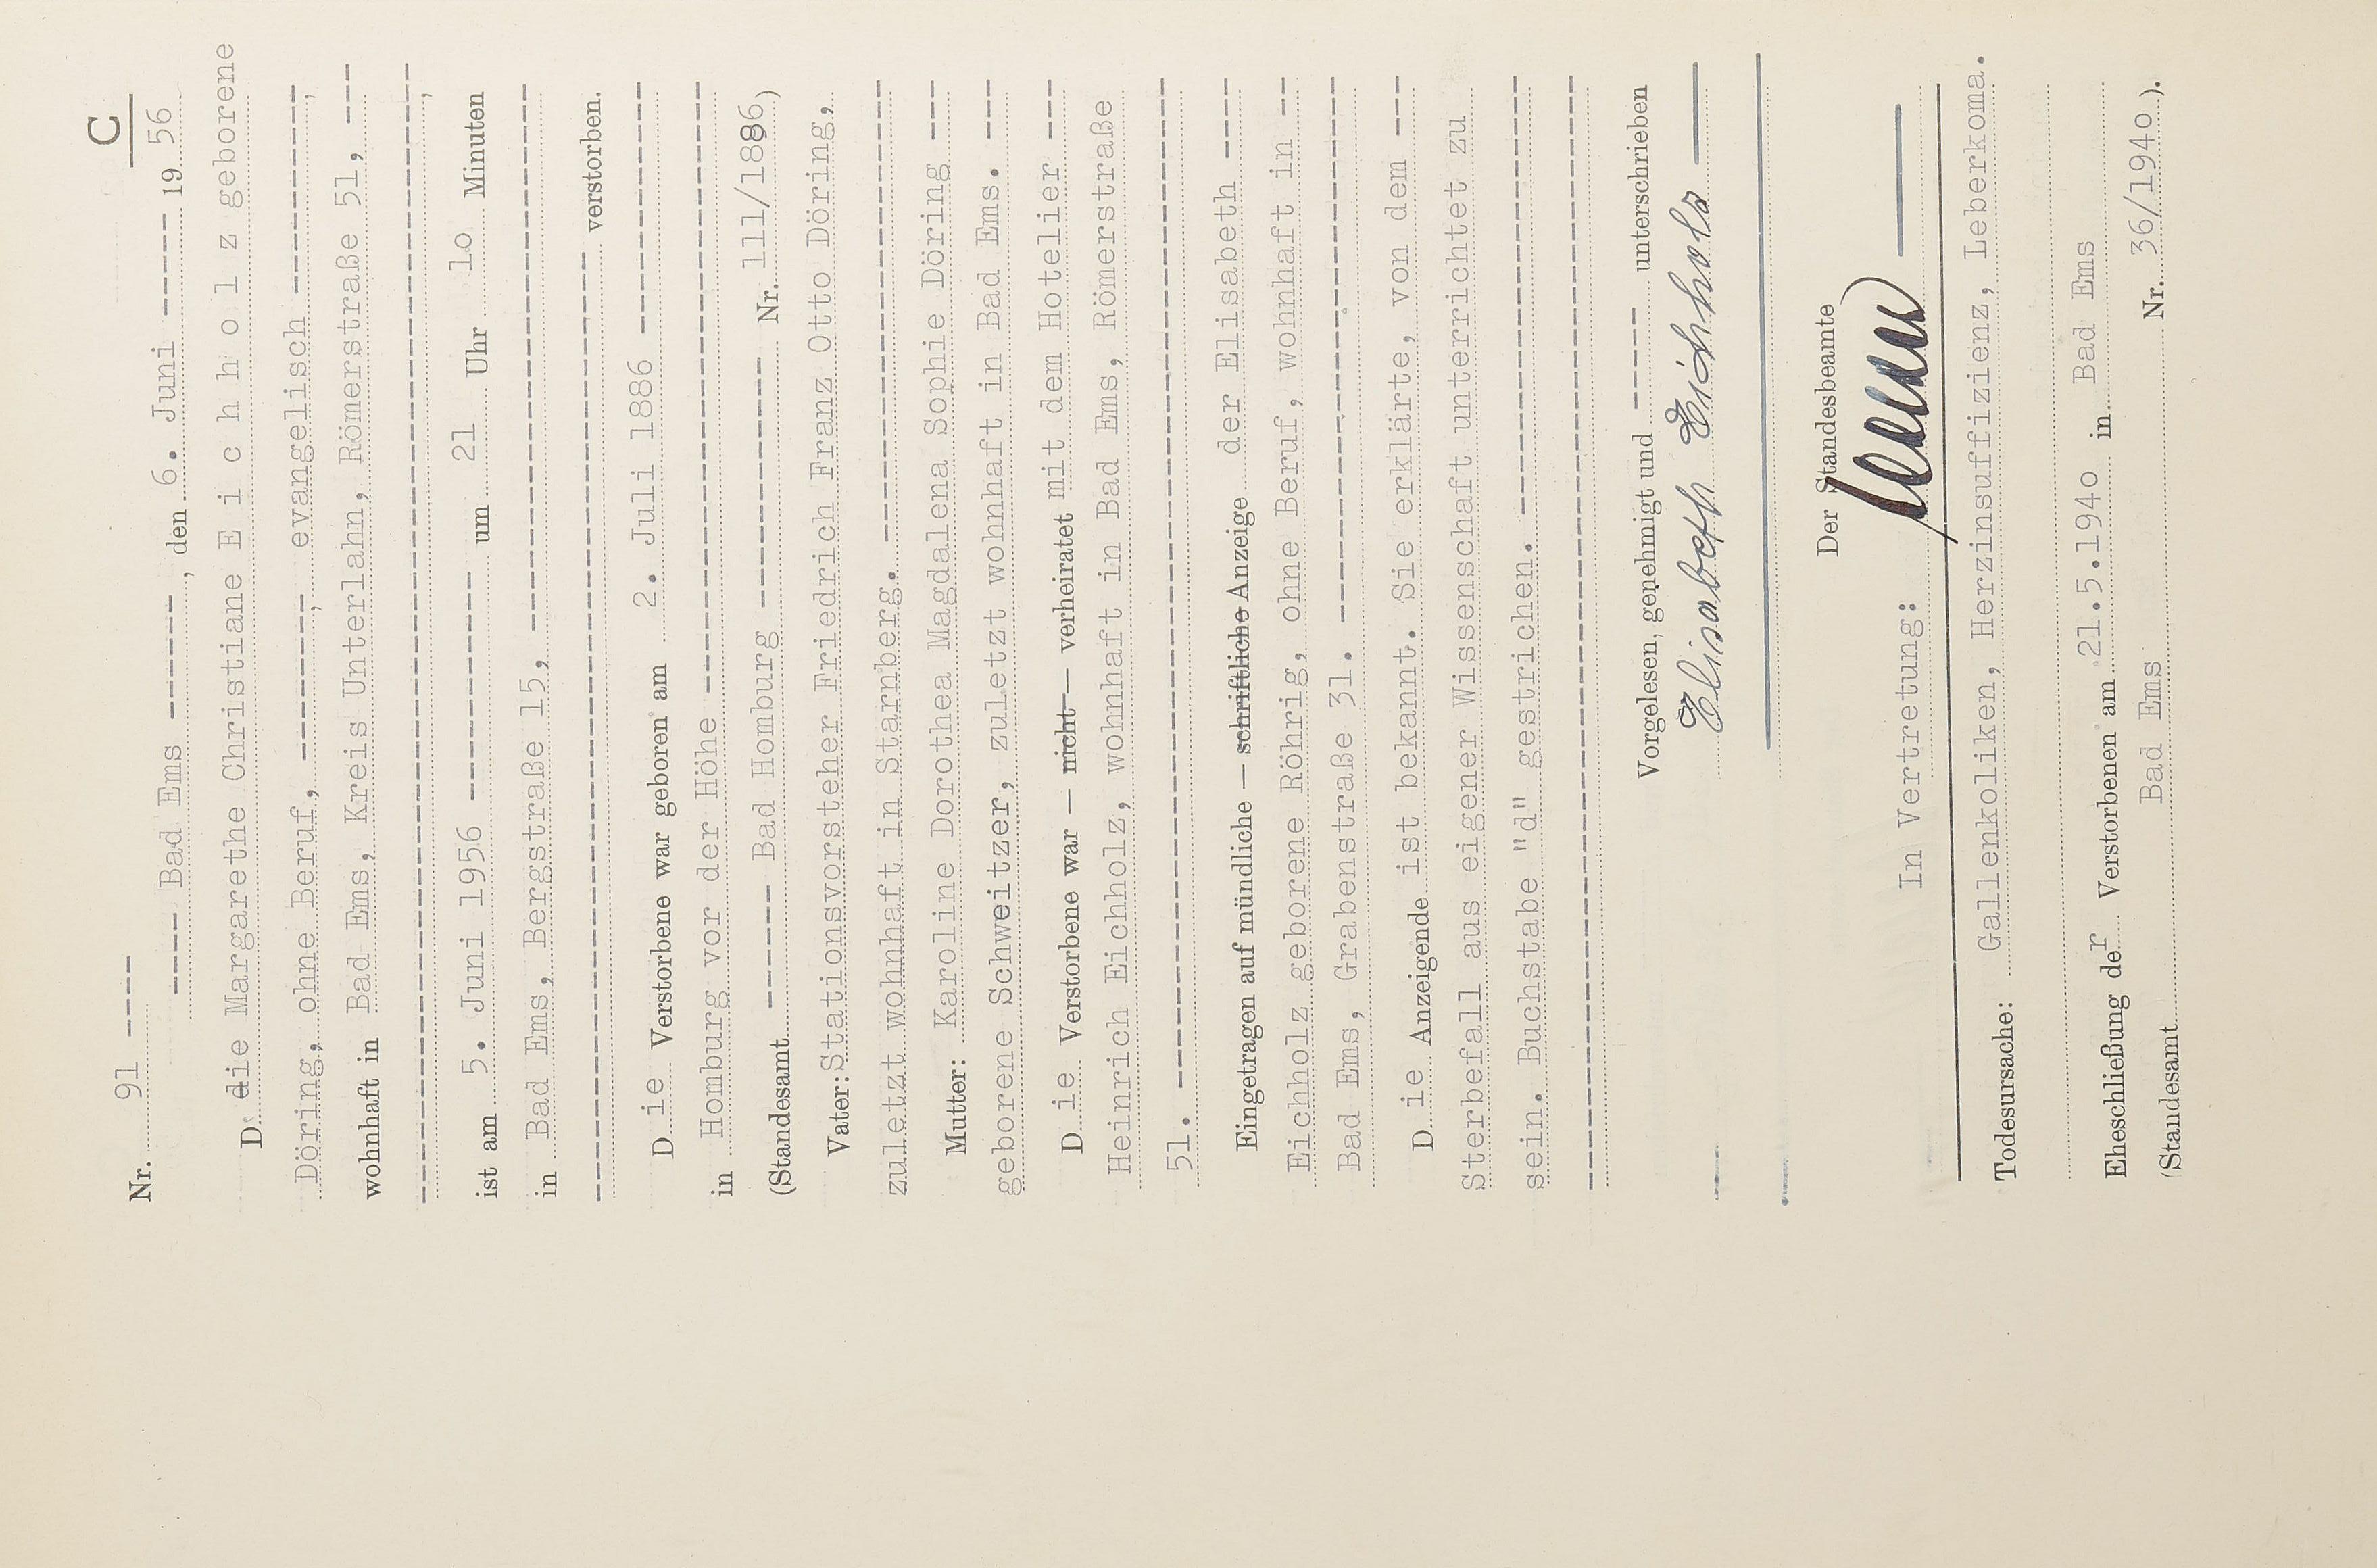 C
Nr. 91 ----
----- Bad Ems -------, den 6. Juni ------ 1956
D. die Margarethe Christiane E i c h h o l z geborene
Döring, ohne Beruf, ---------, evangelisch -----------,
wohnhaft in Bad Ems, Kreis Unterlahn, Römerstraße 51, ----
,
ist am 5. Juni 1956 ------------- um 21 Uhr 10 Minuten
in Bad Ems, Bergstraße 15, ------------------------------
verstorben.
Die Verstorbene war geboren am 2. Juli 1886 --------------
in Homburg vor der Höhe ----------------------------------
(Standesamt ------- Bad Homburg -------------- Nr. 111/1886)
Vater: Stationsvorsteher Friedrich Franz Otto Döring,
zuletzt wohnhaft in Starnberg. --------------------------
Mutter: Karoline Dorothea Magdalena Sophie Döring ----
geborene Schweitzer, zuletzt wohnhaft in Bad Ems. ----
Die Verstorbene war — nicht — verheiratet mit dem Hotelier ----
Heinrich Eichholz, wohnhaft in Bad Ems, Römerstraße
51. ------------------------------------------------------
Eingetragen auf mündliche — schriftliche Anzeige der Elisabeth -----
Eichholz geborene Röhrig, ohne Beruf, wohnhaft in ---
Bad Ems, Grabenstraße 31. -------------------------------
Die Anzeigende ist bekannt. Sie erklärte, von dem ----
Sterbefall aus eigener Wissenschaft unterrichtet zu
sein. Buchstabe "d" gestrichen. -------------------------
Vorgelesen, genehmigt und ------ unterschrieben
Elisabeth Eichholz
Der Standesbeamte
In Vertretung:
Todesursache: Gallenkoliken, Herzinsuffizienz, Leberkoma.
Eheschließung der Verstorbenen am 21.5.1940 in Bad Ems
(Standesamt Bad Ems Nr. 36/1940).